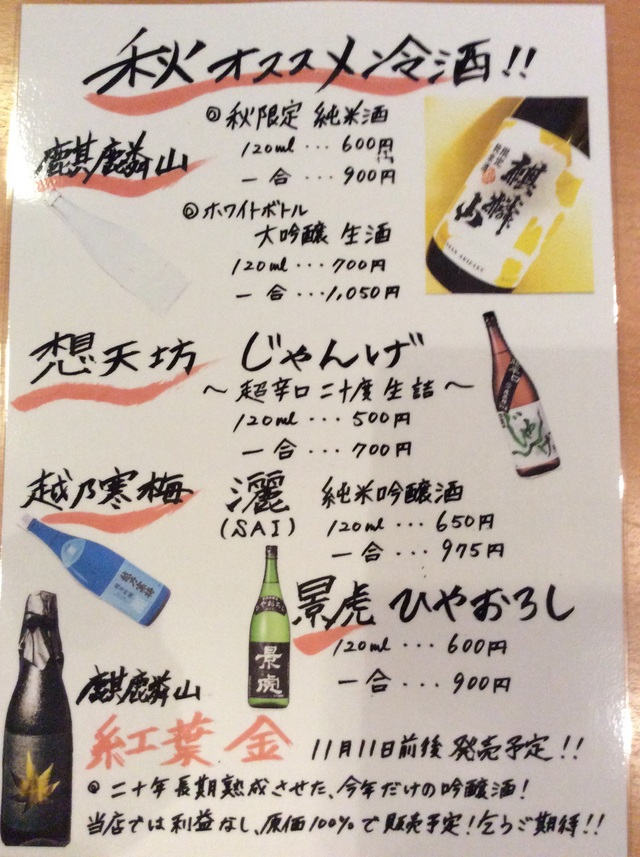 秋オススメ冷酒!!
麒麟山
◎秋限定 純米酒
120ml … 600円
一合 … 900円
◎ホワイトボトル
大吟醸 生酒
120ml … 700円
一合 … 1,050円
麒麟山
想天坊 じゃんげ
～超辛口 二十度 生詰～
120ml … 500円
一合 … 700円
越乃寒梅 灑 純米吟醸酒
(SAI)
120ml … 650円
一合 … 975円
景虎 ひやおろし
120ml … 600円
一合 … 900円
景虎
麒麟山
紅葉 金 11月11日前後 発売予定!!
◎二十年長期熟成させた、今年だけの吟醸酒!
当店では利益なし、原価100%で販売予定!乞うご期待!!